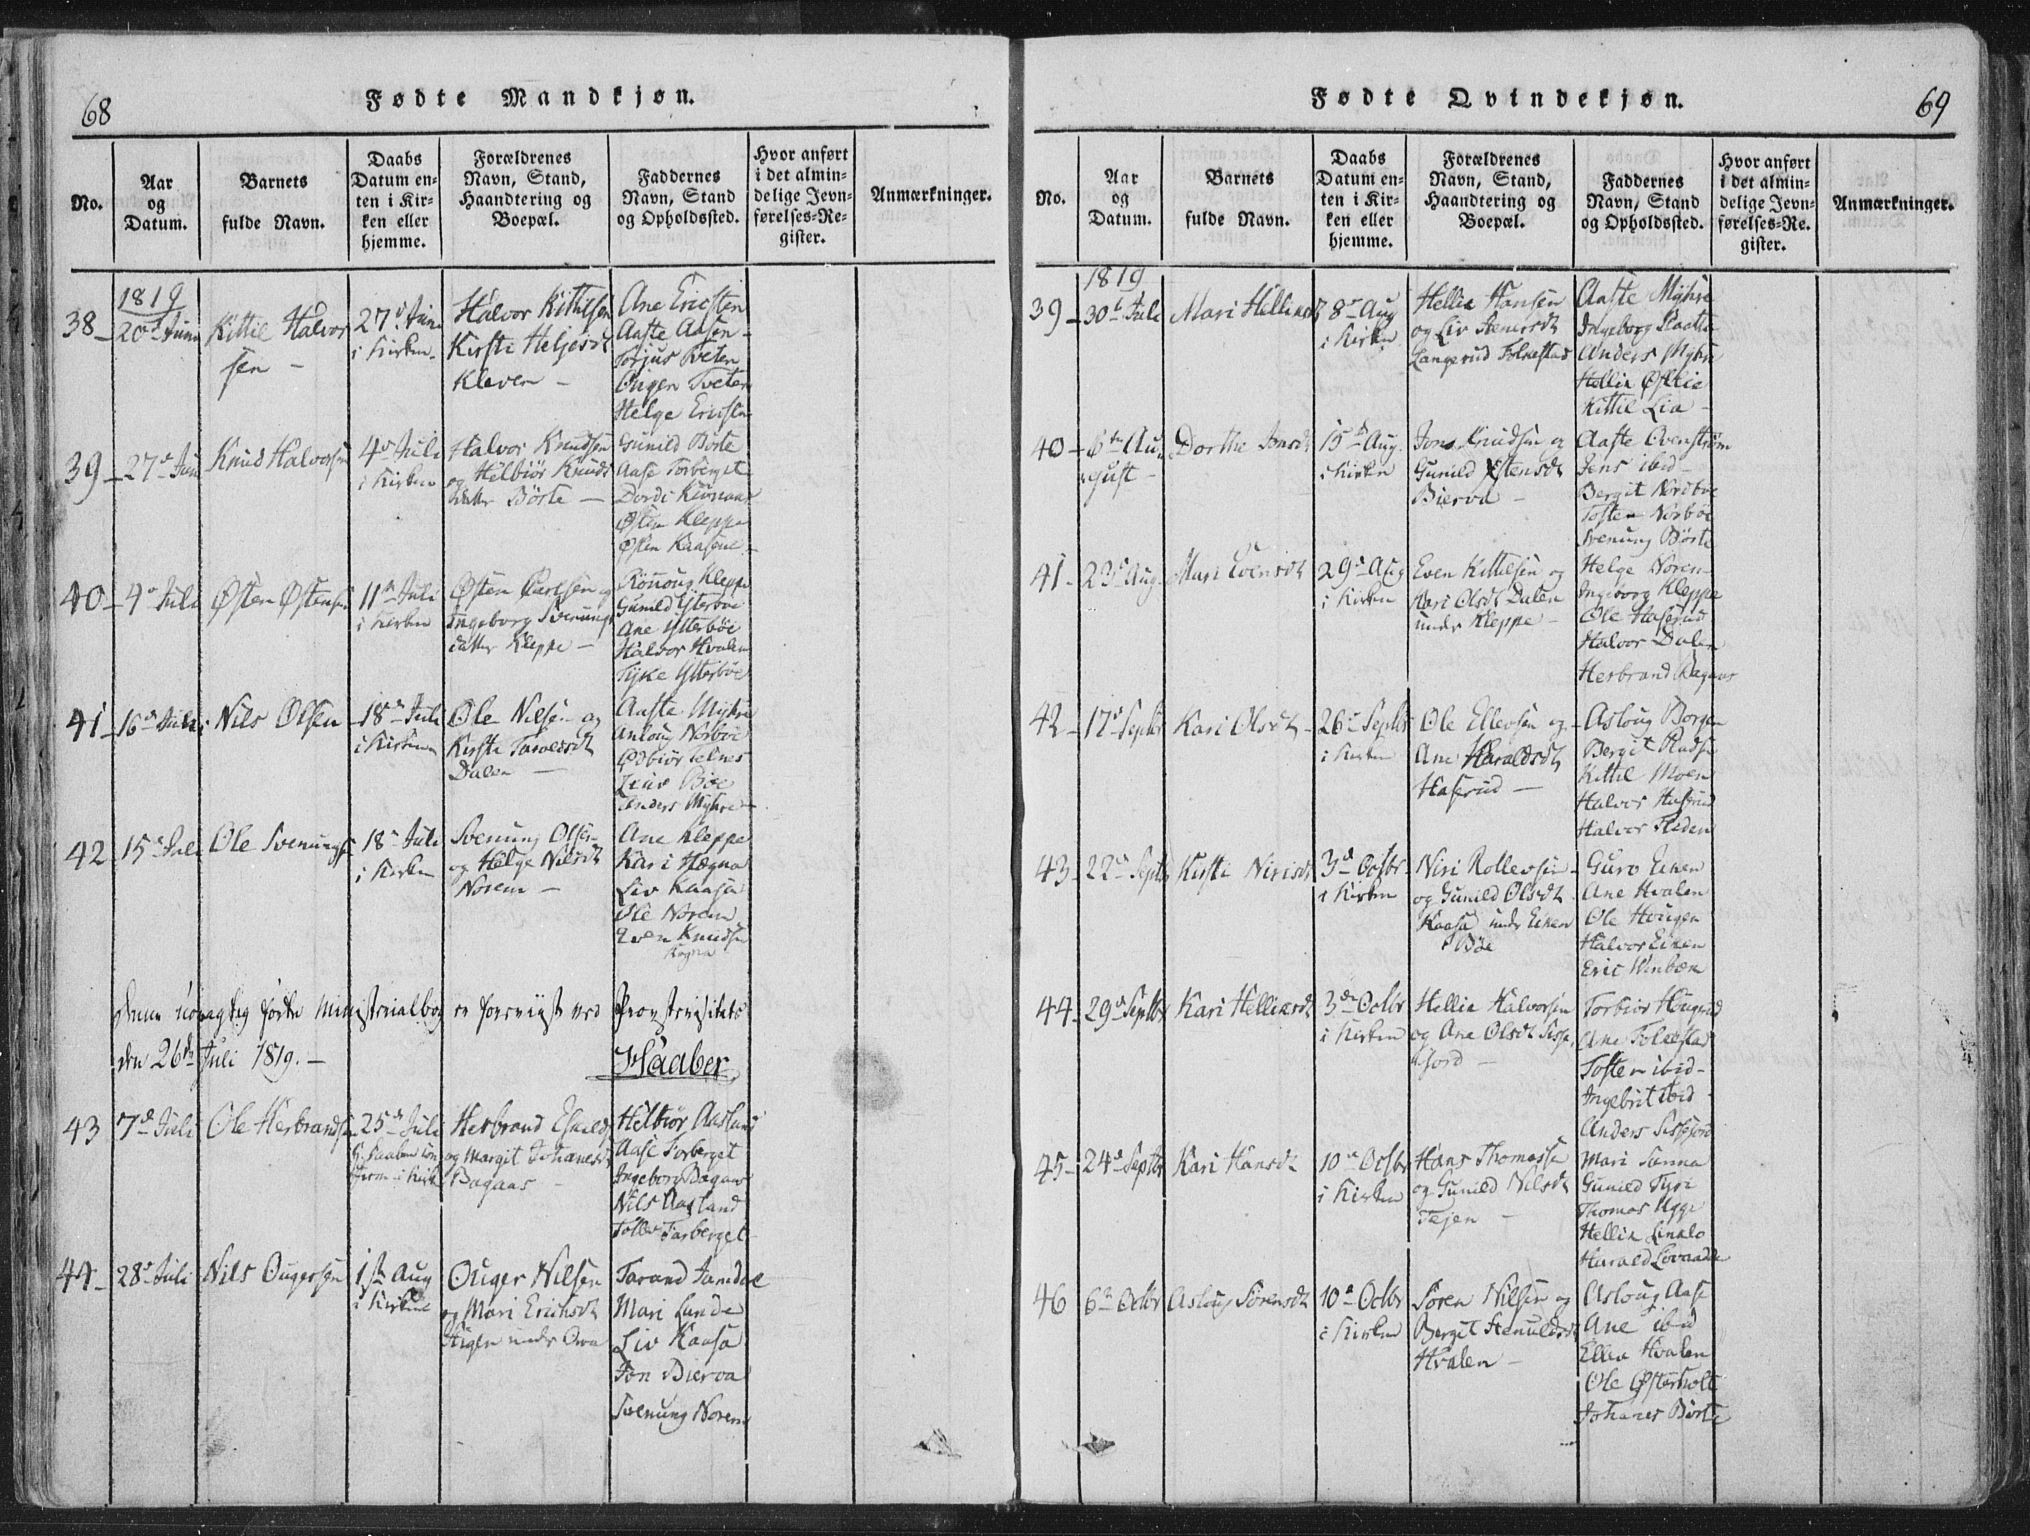 68
Fødte Mandkjøn.
No.
Aar
og
Datum.
Barnets
fulde Navn.
Daabs
Datum en-
ten i Kir-
ken eller
hjemme.
Forældrenes
Navn, Stand,
Haandtering og
Boepæl.
Faddernes
Navn, Stand
og Opholdssted.
Hvor anført
i det almin-
delige Jevn-
førelses-Re-
gister.
Anmærkninger.
1819
38
20de Juni
Kittil Halvor
sen
27d Juni
i Kirken
Halvor Kittilsen
Kirsti Heljesdt
Kleven
Ane Ericsten
Aaste
Torjus Tveten
Tveten
Helge Ericsten
39
27de Juni
Knud Halvorsen
4de Juli
i Kirken
Halvor Knudsen
og Helbiør Knuds
datter Børte
Gunild Børte
Aase Torberget
Dordi
Østen Kleppe
Østen Kaasene
40
4de Juli
Østen Østensen
11te Juli
i Kirken
Østen og
Ingeborg Svenungs
datter Kleppe
Rønnoug Kleppe
Gunild Ytterbøe
Ane Ytterbøe
Halvor Hvalen
Ytterbøe
41
16de Juli
Nils Olsen
18de Juli
i Kirken
Ole Nilsen og
Kirsti Tarveldsdt
Dalen
Aaste Myhre
Norbøe
Edbiør Telnes
Bøe
Anders Myhre
42
15de Juli
Ole Svenungs
18de Juli
i Kirken
Svenung Olsen
og Helge Nilsdt
Norem
Ane Kleppe
Kari Hægna
Liv Kaasa
Ole Norem
Even Knudsen
Denne nøiagtig førte Ministerialbog er foreviist ved Provstevisitats
den 26de Juli 1819.
Haaber
43
7de Juli
Ole Herbrandsen
25de Juli
i Kirk
Herbrand
og Margit Johanesdt
Bagaas
Helbiør Aasland
Aase Torberget
Ingeborg Bagaas
Nils Aasland
Tollev Torberget
44
28de Juli
Nils Ougersen
1ste Aug
i Kirken
Ouger Nilsen
og Mari Erichsdt
Higen under
Tarand
Mari Lunde
Liv Kaasa
Jon Bierva
Svenung Norem
69
Fødte Qvindekjøn.
No.
Aar
og
Datum.
Barnets
fulde Navn.
Daabs
Datum en-
ten i Kir-
ken eller
hjemme.
Forældrenes
Navn, Stand,
Haandtering og
Boepæl.
Faddernes
Navn, Stand
og Opholdssted.
Hvor anført
i det almin-
delige Jevn-
førelses-Re-
gister.
Anmærkninger.
1819
39
30te Juli
Mari Helliksdt
8de Aug
i Kirken
Hellik Hansen
og Liv
Langerud Folkestad
Aaste Myhre
Ingeborg
Anders Myhre
Hellik
Kittil Lia
40
6te Au
gust
Dorthe Jonsdt
15de Aug.
i Kirken
Jons Knudsen og
Gunild Østensdt
Bierva
Aaste Ovenstrøm
Jens ibid
Bergit Nordbøe
Tosten Norbøe
Svenung Børte
41
23de Aug.
Mari Evensdt
29de Aug
i Kirken
Even Kittilsen og
Kari Olsdt Dalen
under Kleppe
Helge Noren
Ingeborg Kleppe
Ole Haserud
Halvor Dalen
Herbrand Bagaas
42
17de Septbr
Kari Olsdt
26de Septbr
i Kirken
Ole Ellevsen og
Ane Haraldsdt
Haserud
Asloug Borgen
Bergit
Kittil Moen
Halvor Haserud
Halvor
43
22de Septbr
Kirsti Nirisdt
3de Octbr
i Kirken
Niri Rollevsen
og Gunild Olsdt
Kaasa under Eiken
Bøe
Guro Eiken
Ane Hvalen
Ole Hougen
Halvor Eiken
Eric Vinbæk
44
29de Septbr
Kari Helliksdt
3de Octbr
i Kirken
Hellik Halvorsen
og Ane Olsdt Sisse
jord
Torbior Hougrud
Ane Folkestad
Tosten ibid
Ingebrit ibid
Anders Sissejord
45
24de Septbr
Kari Hansdt
10de Octbr
i Kirken
Hans Thomassen
og Gunild Nilsdt
Tejen
Mari Sanna
Gunild
Thomas
Hellik
Harald
46
6te Octbr
Asloug Sørensdt
10de Octbr
i Kirken
Søren Nilsen og
Bergit
Hvalen
Asloug Aase
Ane ibid
Ellen Hvalen
Ole Østerholt
Johanes Børte